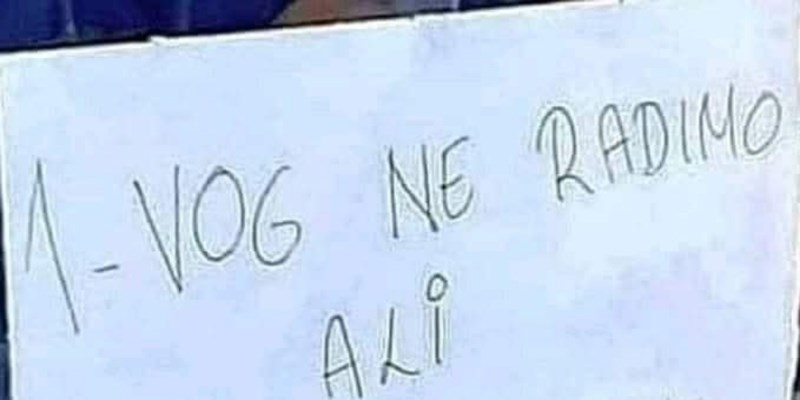 1-VOG NE RADIMO
ALi